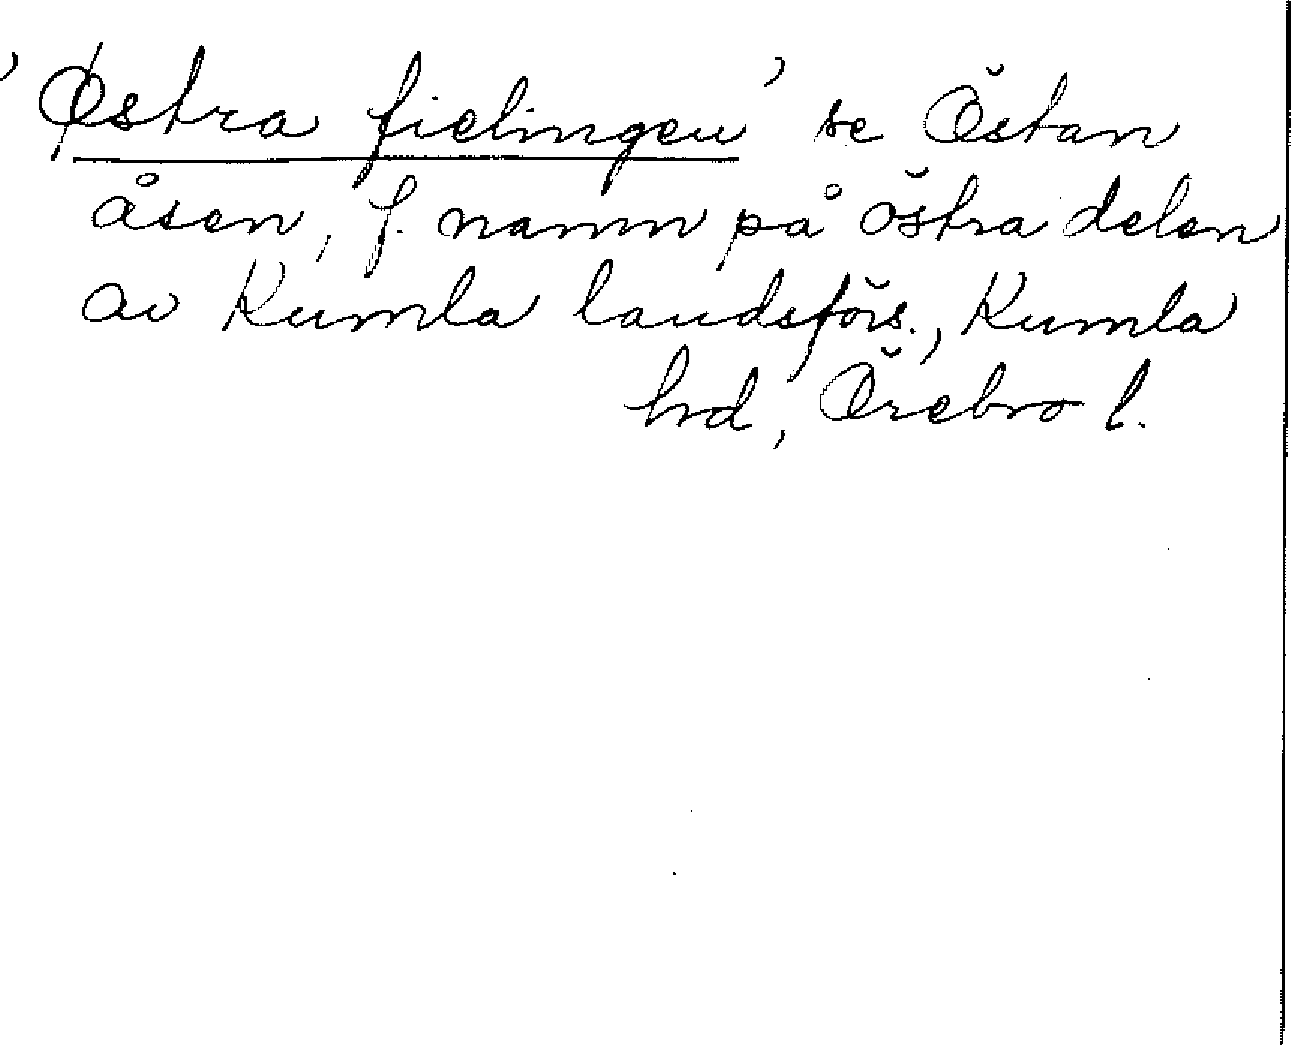 'Østra fielingen' se Östan
åsen, f. namn på östra delen
av Kumla landsförs., Kumla
hd, Örebro l.